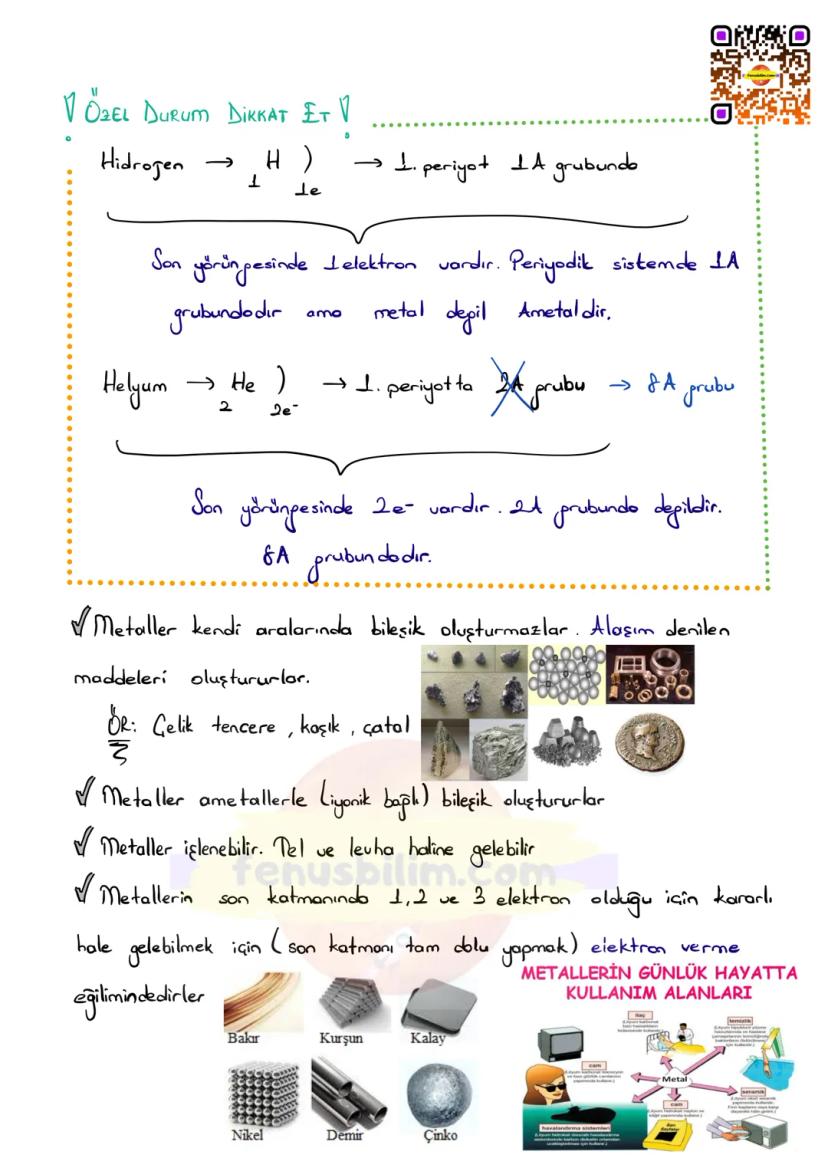 ! ÖZEL DURUM DİKKAT ET !
Hidrojen → ₁H ) 1e → 1. periyot 1A grubunda
Son yörüngesinde 1 elektron vardır. Periyodik sistemde 1A
grubundadır ama metal değil Ametaldir.
Helyum → ₂He ) 2e⁻ → 1. periyotta 2A grubu → 8A grubu
Son yörüngesinde 2e⁻ vardır. 2A grubunda değildir.
8A grubundadır.
Metaller kendi aralarında bileşik oluşturmazlar. Alaşım denilen
maddeleri oluştururlar.
ÖR: Çelik tencere, kaşık, çatal
Metaller ametallerle (iyonik bağlı) bileşik oluştururlar
Metaller işlenebilir. Tel ve levha haline gelebilir
fenusbilim.com
Metallerin son katmanında 1,2 ve 3 elektron olduğu için kararlı
hale gelebilmek için (son katmanı tam dolu yapmak) elektron verme
eğilimindedirler
METALLERİN GÜNLÜK HAYATTA
KULLANIM ALANLARI
Bakır
Kurşun
Kalay
Nikel
Demir
Çinko
ilaç
temizlik
cam
Metal
seramik
cam
havalandırma sistemleri